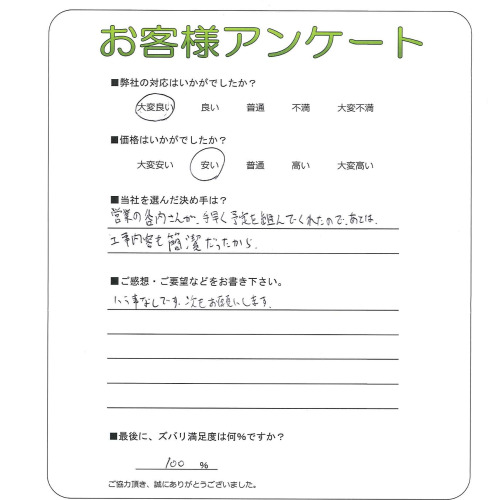 お客様アンケート
■弊社の対応はいかがでしたか?
大変良い 良い 普通 不満 大変不満
■価格はいかがでしたか?
大変安い 安い 普通 高い 大変高い
■当社を選んだ決め手は?
営業の内さんが、手早く予定を組んでくれたので、あとは、
工事内容も簡潔だったから。
■ご感想・ご要望などをお書き下さい。
いう事なしです。次もお願いします。
■最後に、ズバリ満足度は何%ですか?
100 %
ご協力頂き、誠にありがとうございました。